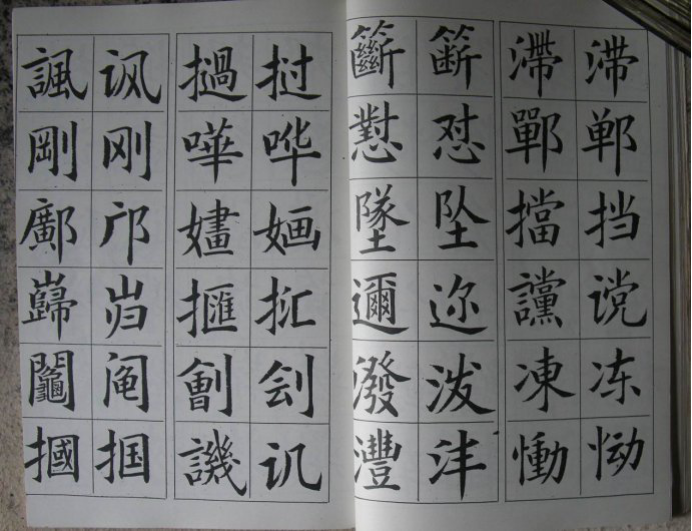 諷 讽 撾 挝 籪 簖 滯 滞
剛 刚 嘩 哗 懟 怼 鄲 郸
鄺 邝 嫿 婳 墜 坠 擋 挡
巋 岿 邇 迩 讜 谠
鬮 阄 劊 刽 潑 泼 凍 冻
摑 掴 譏 讥 灃 沣 慟 恸